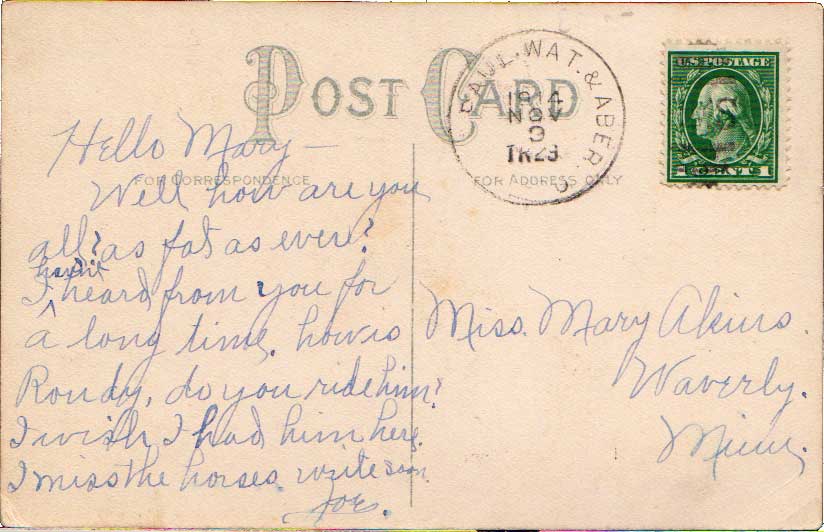 POST CARD
FOR CORRESPONDENCE
FOR ADDRESS ONLY
PAUL. WAT. & ABER
1914
NOV
9
TR29
U.S. POSTAGE
1 CENT 1
Hello Mary —
Well how are you
all? as fat as evere?
havnit
I ^ heard from you for
a long time. how is
Roudy, do you ride him?
I wish I had him here.
I miss the horses. write soon
Joe.
Miss. Mary Akins.
Waverly.
Minn.